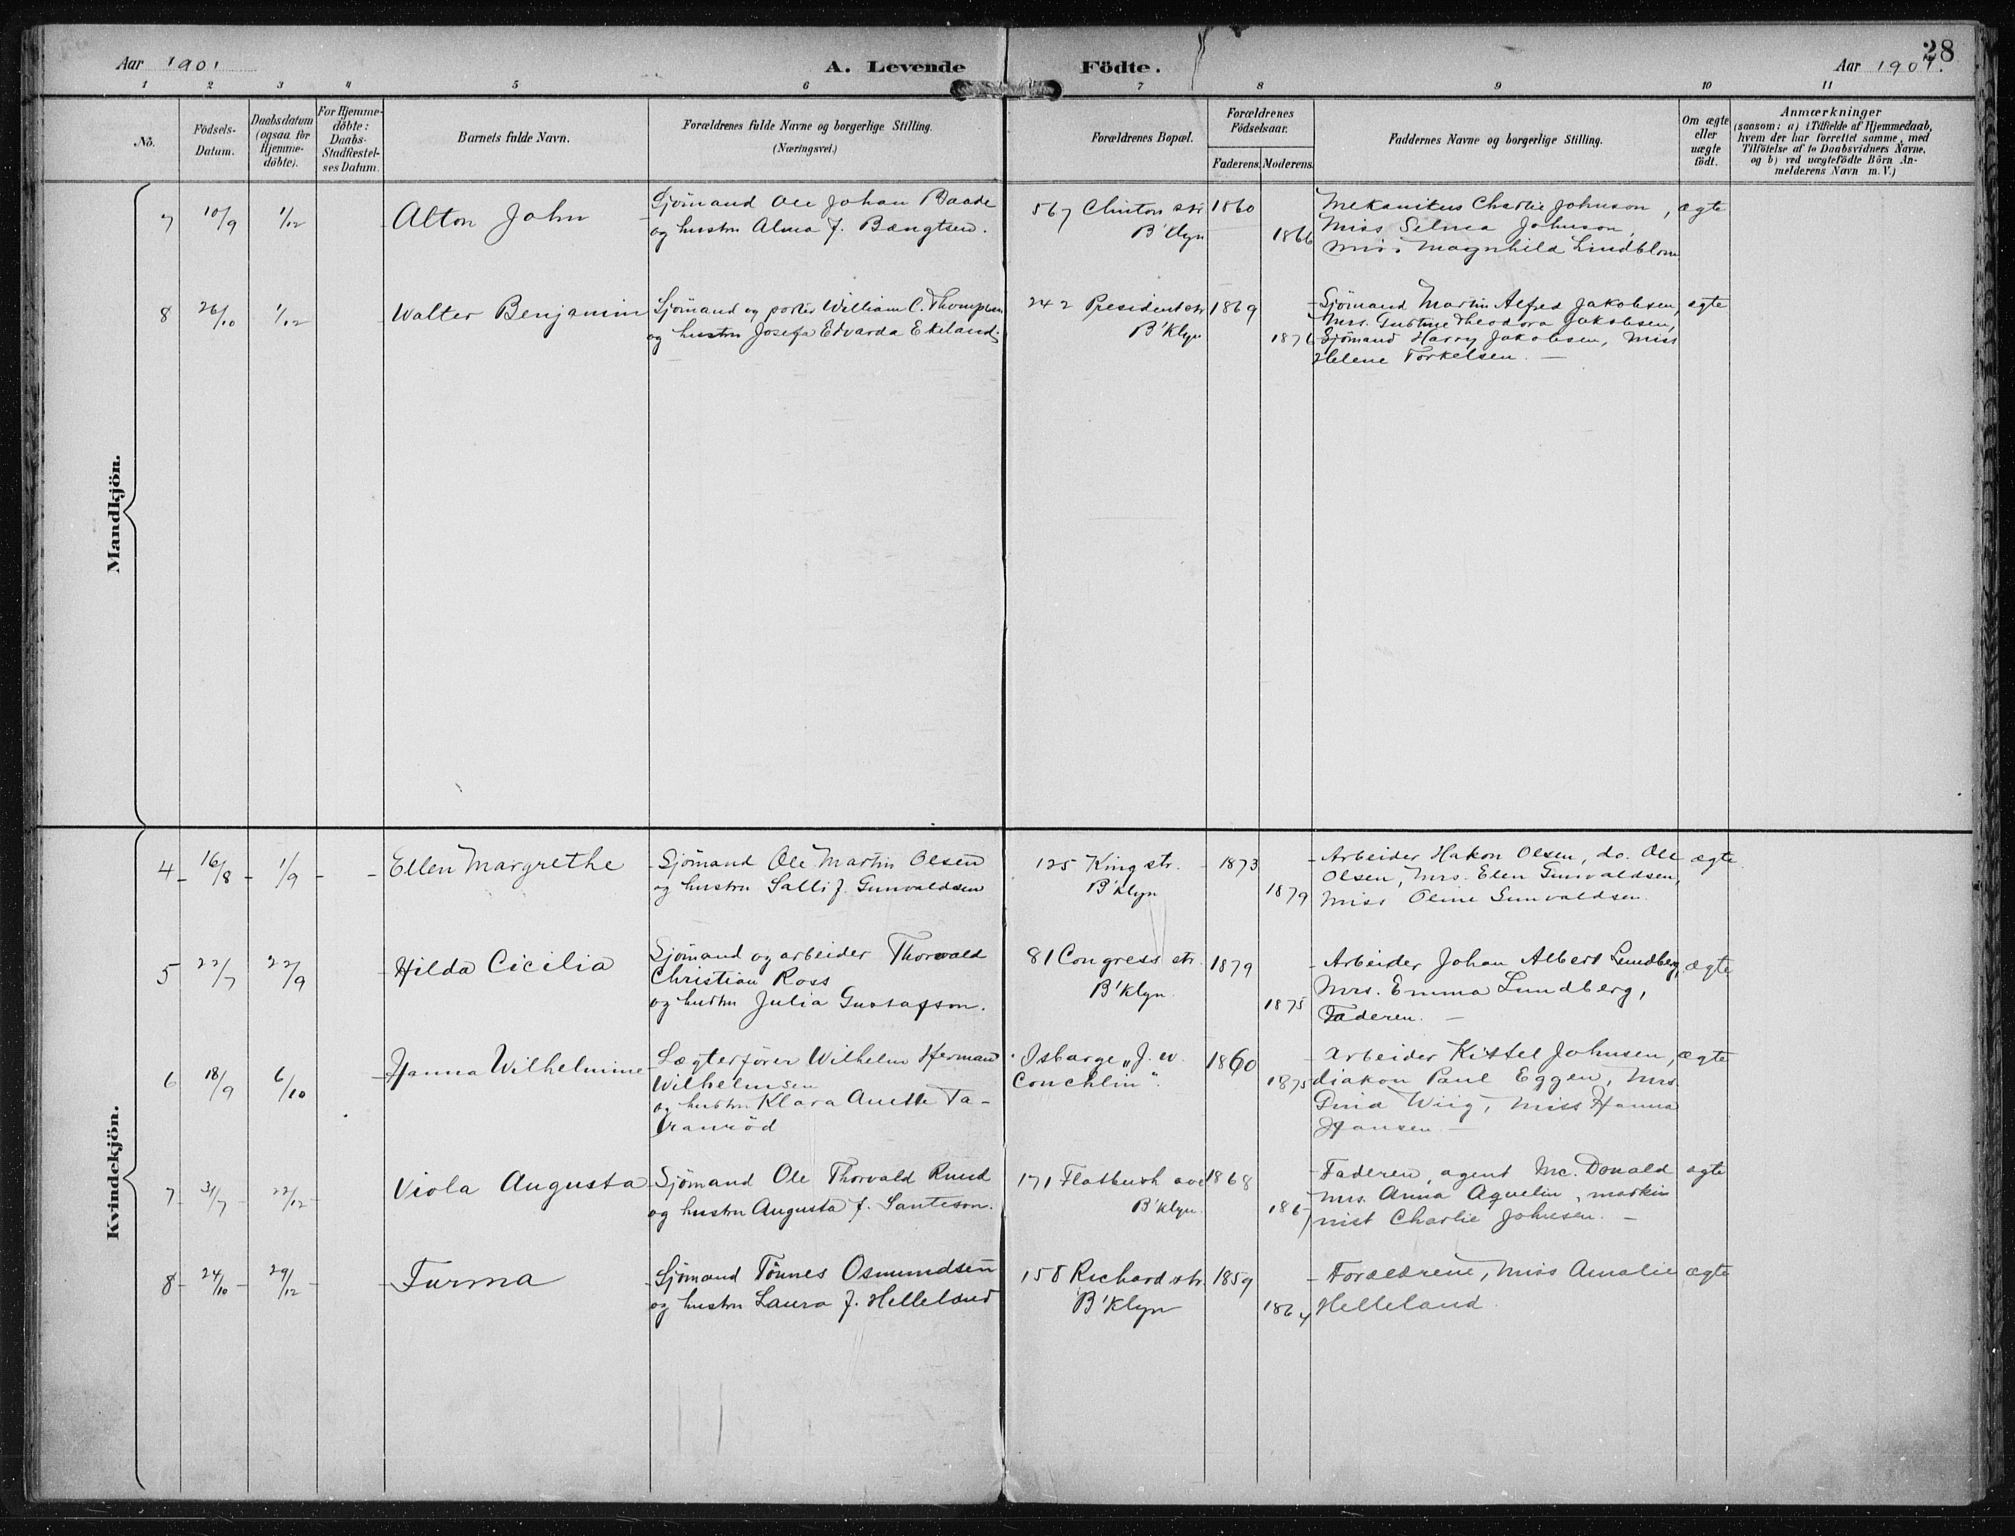 28
Aar 1901
A. Levende Födte.
Aar 1901.
1 2 3 4 5 6 7 8 9 10 11
No.
Födsels-
Datum.
Daabsdatum
(ogsaa for
Hjemme-
döbte).
For Hjemme-
döbte:
Daabs-
Stadfæstel-
ses Datum.
Barnets fulde Navn.
Forældrenes fulde Navne og borgerlige Stilling.
(Næringsvei.)
Forældrenes Bopæl.
Forældrenes
Födselsaar.
Faderens. Moderens.
Faddernes Navne og borgerlige Stilling.
Om ægte
eller
uægte
födt.
Anmærkninger
(saasom: a) i Tilfælde af Hjemmedaab,
hvem der har forrettet samme, med
Tilföielse af to Daabsvidners Navne,
og b) ved uægtefödte Börn An-
melderens Navn m. V.)
Mandkjön.
7 10/9 1/12 Alton John
Sjömand Ole Johan Baade
og hustru Alma f. Bængtsen.
567 Clinton str
B'klyn
1860
1866
Mekanikus Charlie Johnson,
Miss Selma Johnson,
Miss Magnhild Lindblom
ægte
8 26/10 1/12 Walter Benjamin
Sjömand og porter William C. Thompsen
og hustru Josefa Edvarda Ekeland.
242 President str
B'klyn
1869
1876
Sjömand Martin Alfred Jakobsen,
Mrs. Gustine Theodora Jakobsen,
Sjömand Harry Jakobsen, Miss
Helene Torkelsen. —
ægte
Kvindekjön.
4 16/8 1/9 Ellen Margrethe
Sjömand Ole Martin Olsen
og hustru Salli f. Gunvaldsen
125 King str.
B'klyn
1873
1879
Arbeider Hakon Olsen, do. Ole
Olsen, Mrs. Elen Gunvaldsen,
Miss Oline Gunvaldsen.
ægte
5 22/7 22/9 Hilda Cicilia
Sjömand og arbeider Thorvald
Christian Ross
og hustru Julia Gustafson.
81 Congress str.
B'klyn.
1879
1875
Arbeider Johan Albert Lundberg,
Mrs. Emma Lundberg,
Faderen. —
ægte
6 18/9 6/10 Hanna Wilhelmine
Lægterförer Wilhelm Herman
Wilhelmsen
og hustru Klara Anette Ta-
ranröd
Isbarge „J. W.
Conchlin".
1860
1875
Arbeider Kittel Johnsen,
diakon Paul Eggen, Mrs.
Gina Wiig, Miss Hanna
Hansen —
ægte
7 31/7 22/12 Viola Augusta
Sjömand Ole Thorvald Ruud
og hustru Augusta f. Santeson.
171 Flatbush ave
B'klyn.
1868
1867
Faderen, agent Mc. Donald
Mrs. Anna Aquelin, maski
nist Charlie Johnsen. —
ægte
8 24/10 29/12 Furma
Sjömand Tönnes Osmundsen
og hustru Laura f. Helleland
158 Richard str.
B'klyn
1859
1864
Forældrene, Miss Amalie
Helleland.
ægte